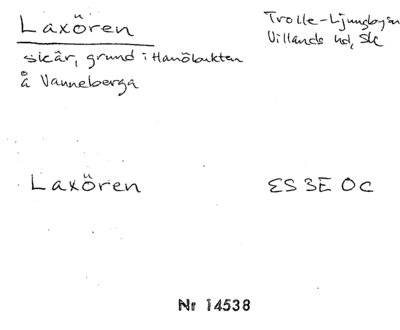 Laxören
Trolle-Ljungby sn
Villands hd, Sk
skär, grund i Hanöbukten
å Vanneberga
Laxören
3E OC
Nr 14538